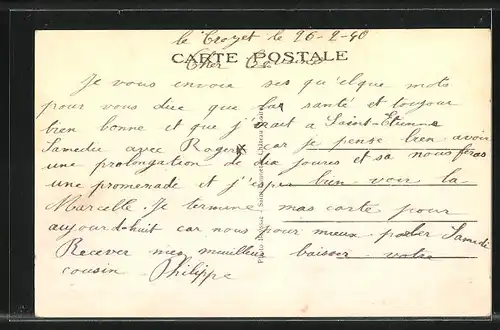 le Crozet le 26-2-40
CARTE POSTALE
Cher Cousin
Je vous envoie ses quelque mots
pour vous dire que la santé et toujour
bien bonne et que j'irait a Saint-Etienne
Samedie avec Roger car je pense bien avoir
une prolongation de dix joures et sa nous feras
une promenade et j'esper bien voir la
Marcelle. Je termine mas carte pour
aujourd'huit car nous pour mieux parler Samedi
Recever mes meuilleur baiser votre
cousin Philippe